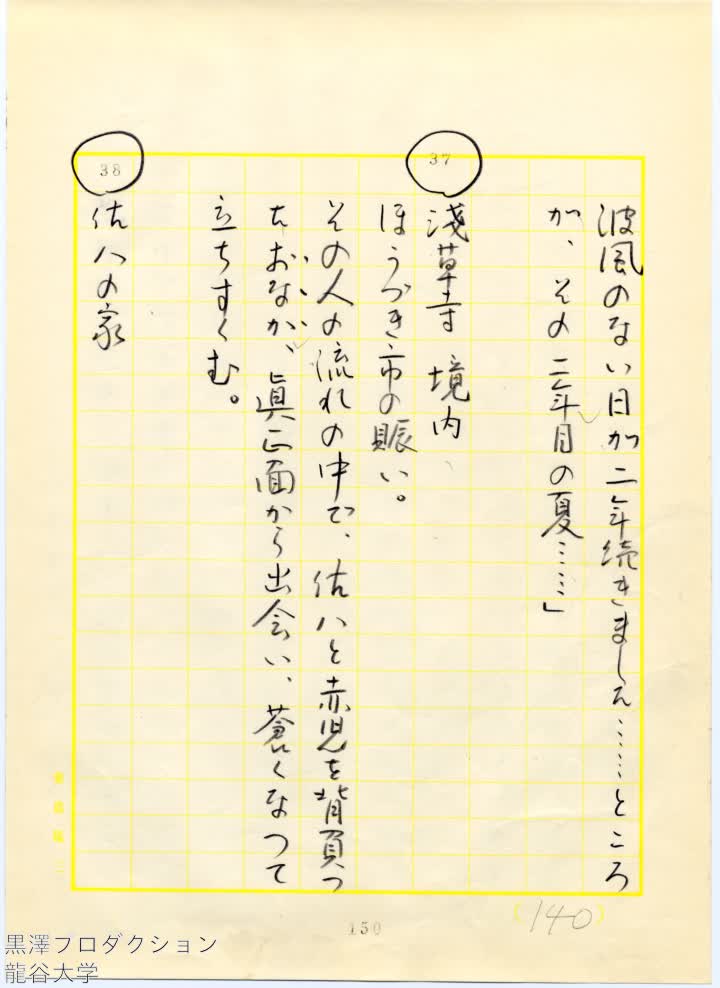 波風のない日が二年続きました……ところ
が、その二年目の夏……」
37
浅草寺 境内
ほうづき市の賑い。
その人の流れの中で、佐八と赤児を背負つ
たおなか、眞正面から出会い、蒼くなつて
立ちすくむ。
38
佐八の家
150
(140)
黒澤プロダクション
龍谷大学